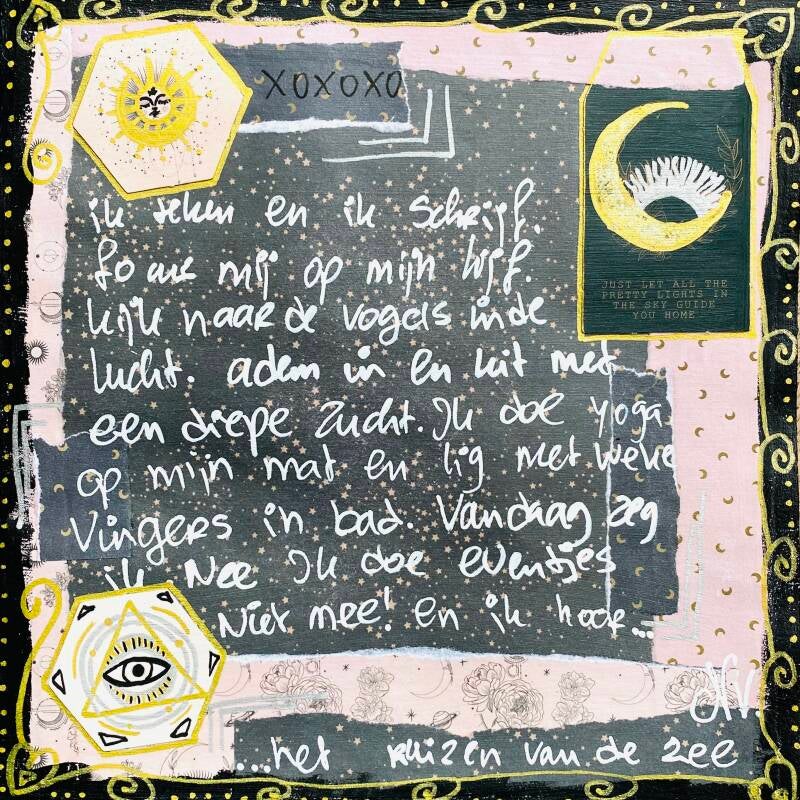 XOXOXO
ik teken en ik schrijf.
focus mij op mijn lijf.
kijk naar de vogels in de
lucht. adem in en uit met
een diepe zucht. Ik doe yoga
op mijn mat en lig met weke
Vingers in bad. Vandaag zeg
ik Nee Ik doe eventjes
Niet mee! en ik hoor...
...het ruizen van de zee
JUST LET ALL THE
PRETTY LIGHTS IN
THE SKY GUIDE
YOU HOME